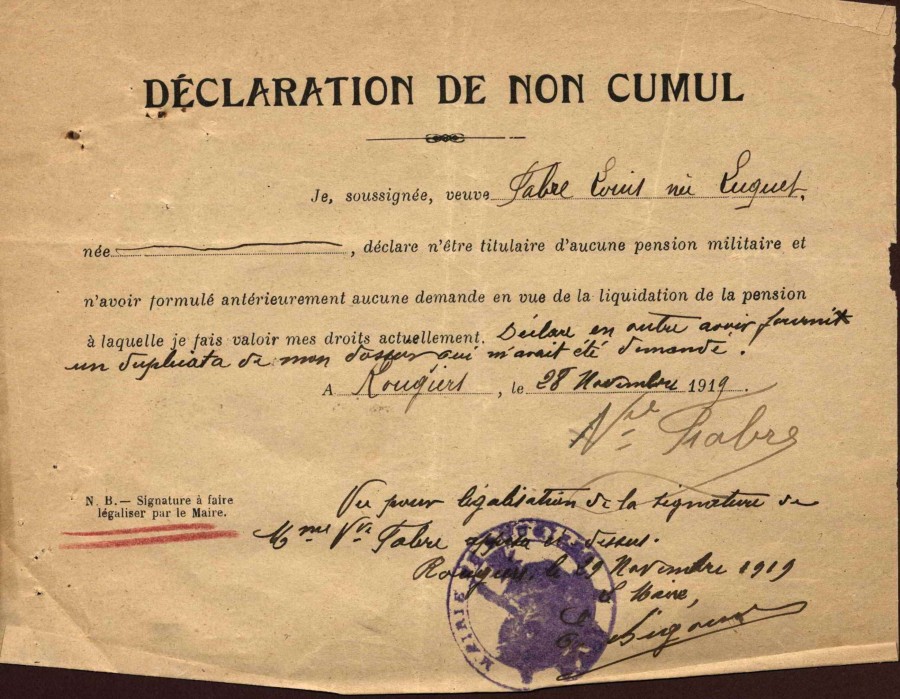 DÉCLARATION DE NON CUMUL
Je, soussignée, veuve Fabre Louis née Luquet,
née , déclare n'être titulaire d'aucune pension militaire et
n'avoir formulé antérieurement aucune demande en vue de la liquidation de la pension
à laquelle je fais valoir mes droits actuellement. Déclare en outre avoir fournit
un duplicata de mon dossier qui m'avait été demandé.
A Rougiers, le 28 Novembre 1919.
Vve Fabre
N. B. — Signature à faire
légaliser par le Maire.
Vu pour légalisation de la signature de
Mme Vve Fabre ci dessus.
Rougiers, le 29 Novembre 1919
Le Maire,
MAIRIE